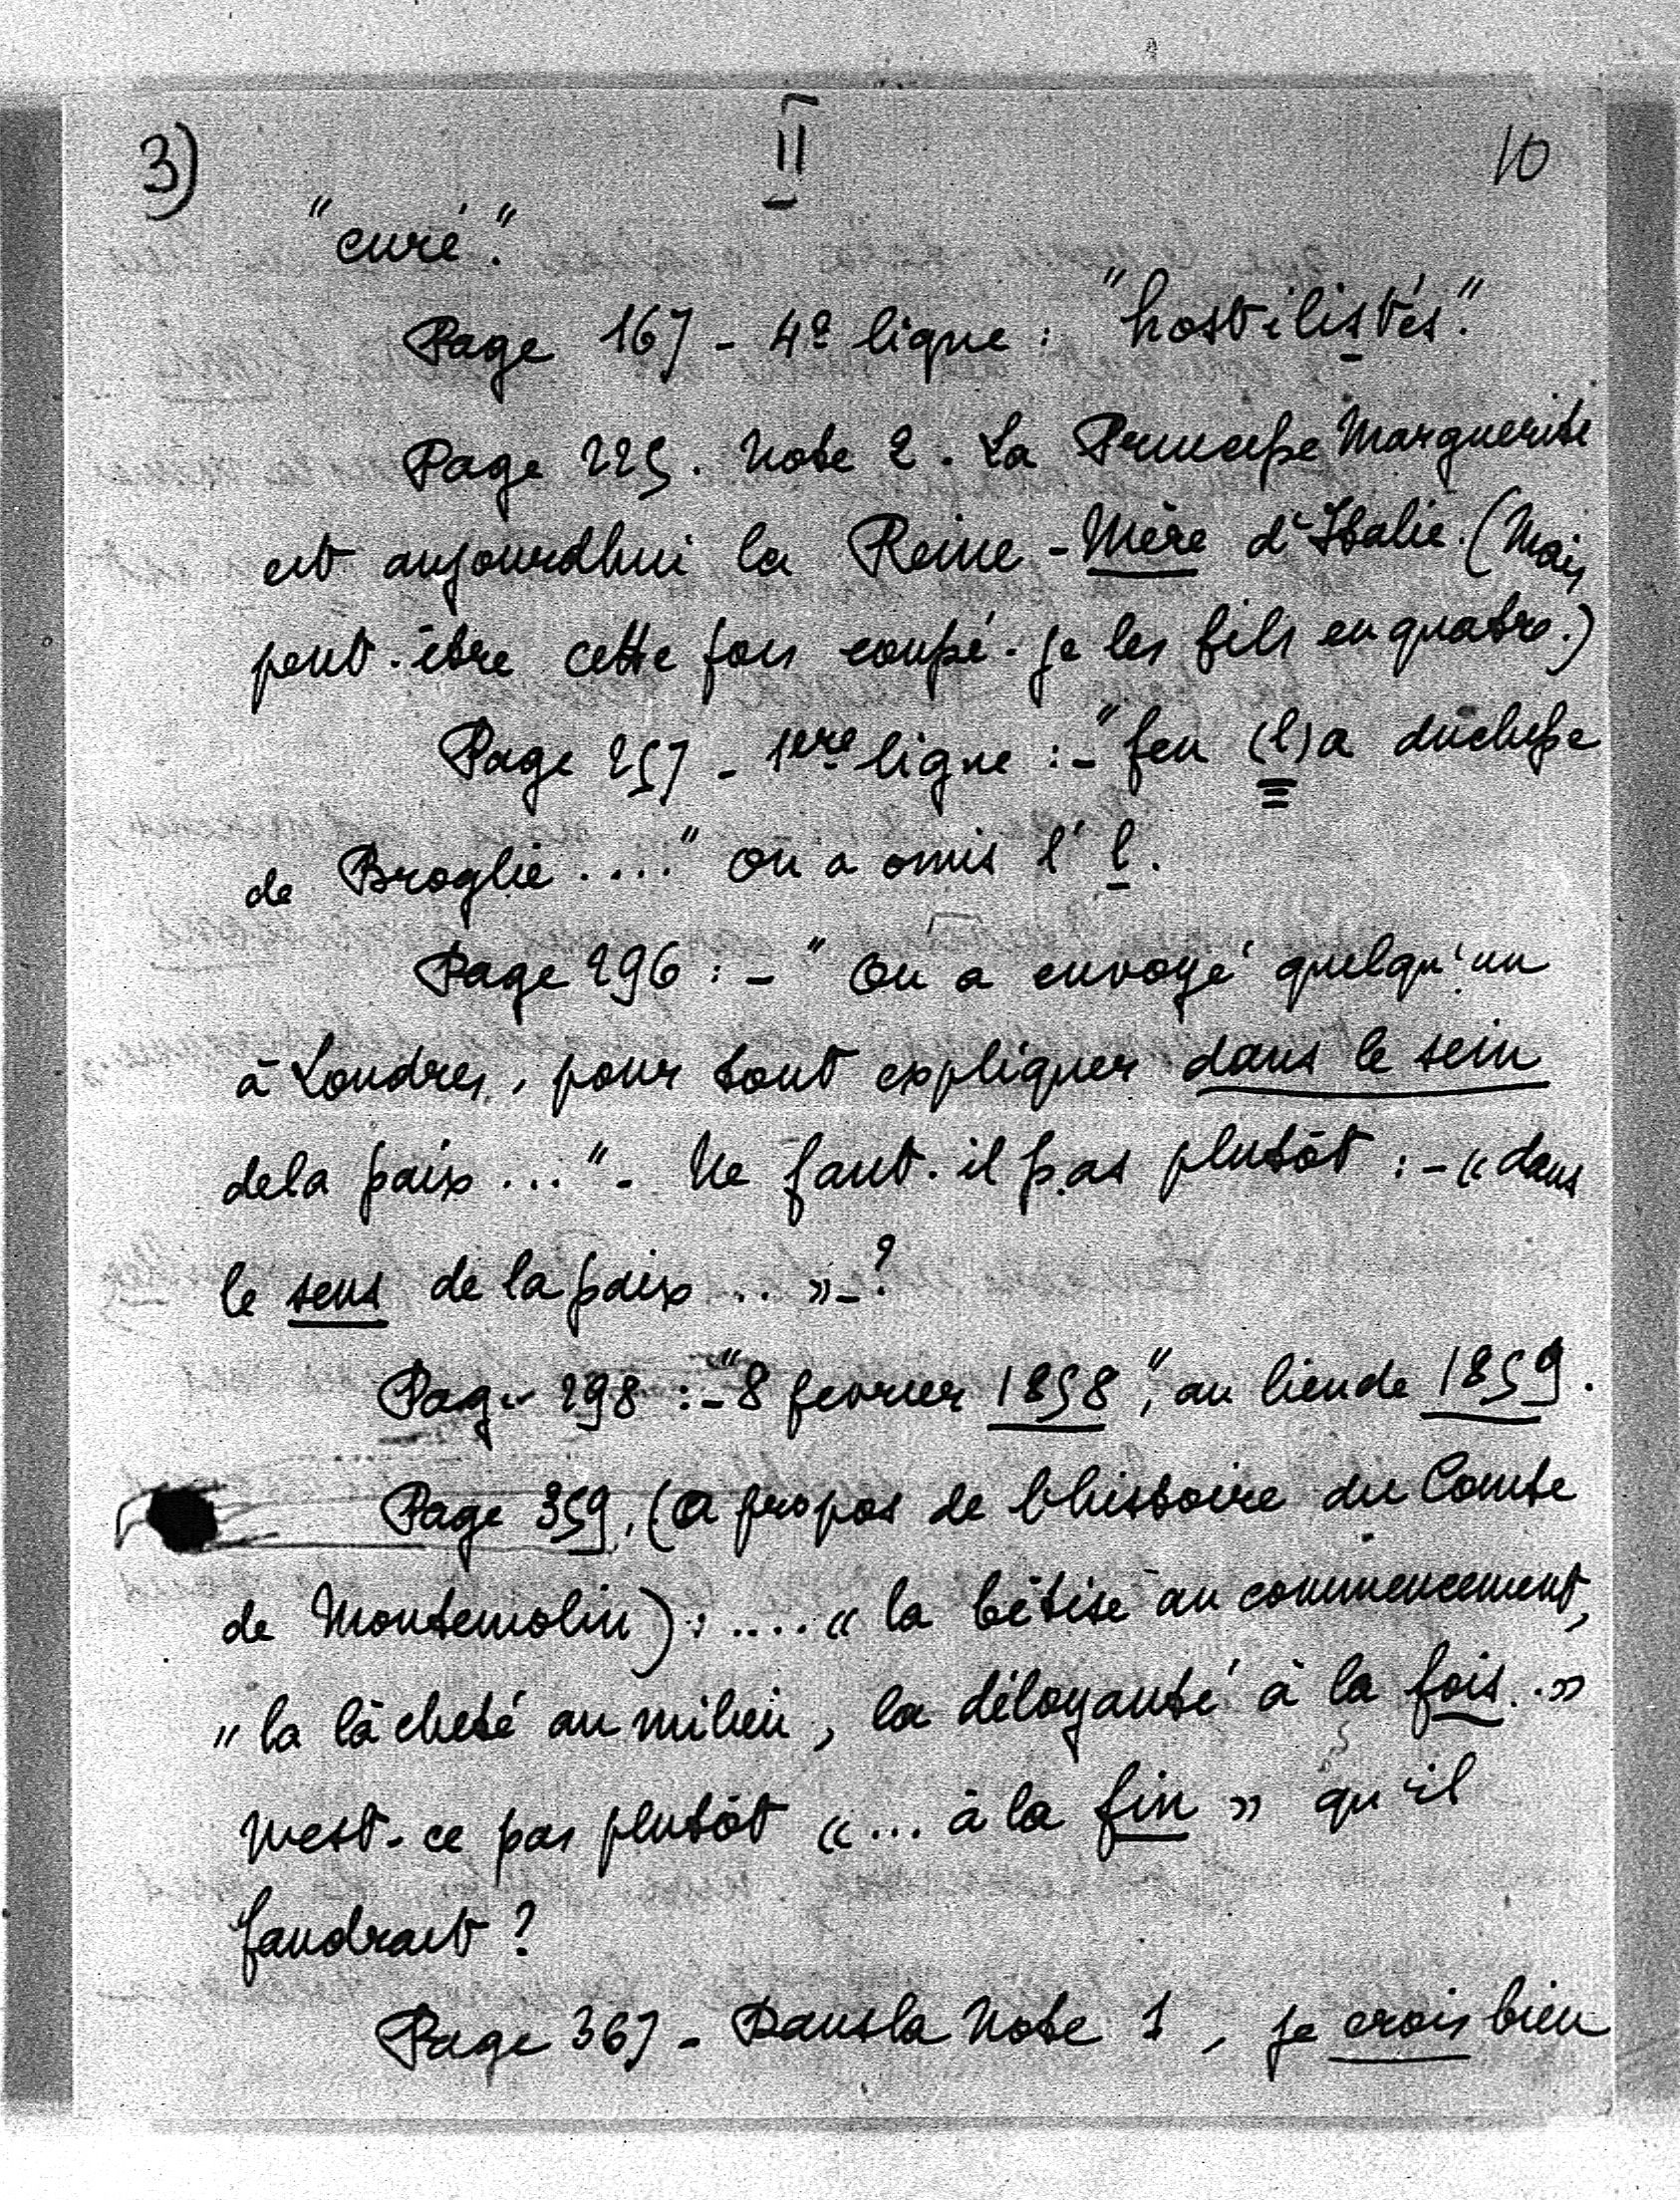 3) II 10
"curé".
Page 167 - 4e ligne : "hostilistés".
Page 225. Note 2. La Princesse Marguerite
est aujourdhui la Reine-Mère d'Italie. (Mais
peut-être cette fois coupé-je les fils en quatre.)
Page 257 - 1ere ligne : - "feu (l)a duchesse
de Broglie ...." On a omis l' l.
Page 296 : - "On a envoyé quelqu'un
à Londres, pour tout expliquer dans le sein
de la paix ..." - Ne faut-il pas plutôt : - « dans
le sens de la paix .. » - ?
Page 298 : - "8 fevrier 1858", au lieu de 1859.
Page 359. (A propos de l'histoire du Comte
de Montemolin) : .... « la bêtise au commencement,
" la lâcheté au milieu, la déloyauté à la fois. . »
N'est-ce pas plutôt « ... à la fin » qu'il
faudrait ?
Page 367 - Dans la Note 1, je crois bien